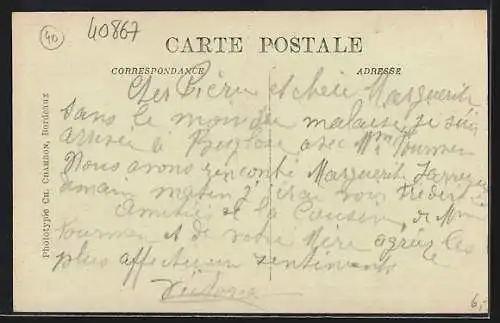 40
40867
CARTE POSTALE
CORRESPONDANCE
ADRESSE
Phototypie CH. CHAMBON, Bordeaux
Cher Pierre et chère Marguerite
Sans le moindre malaise, je suis
arrivée à avec Mme
Nous avons rencontré Marguerite
demain matin j'irai voir
Amitiés et la de Mme
et de votre Mère agréez les
plus affectueux sentiments
6,-